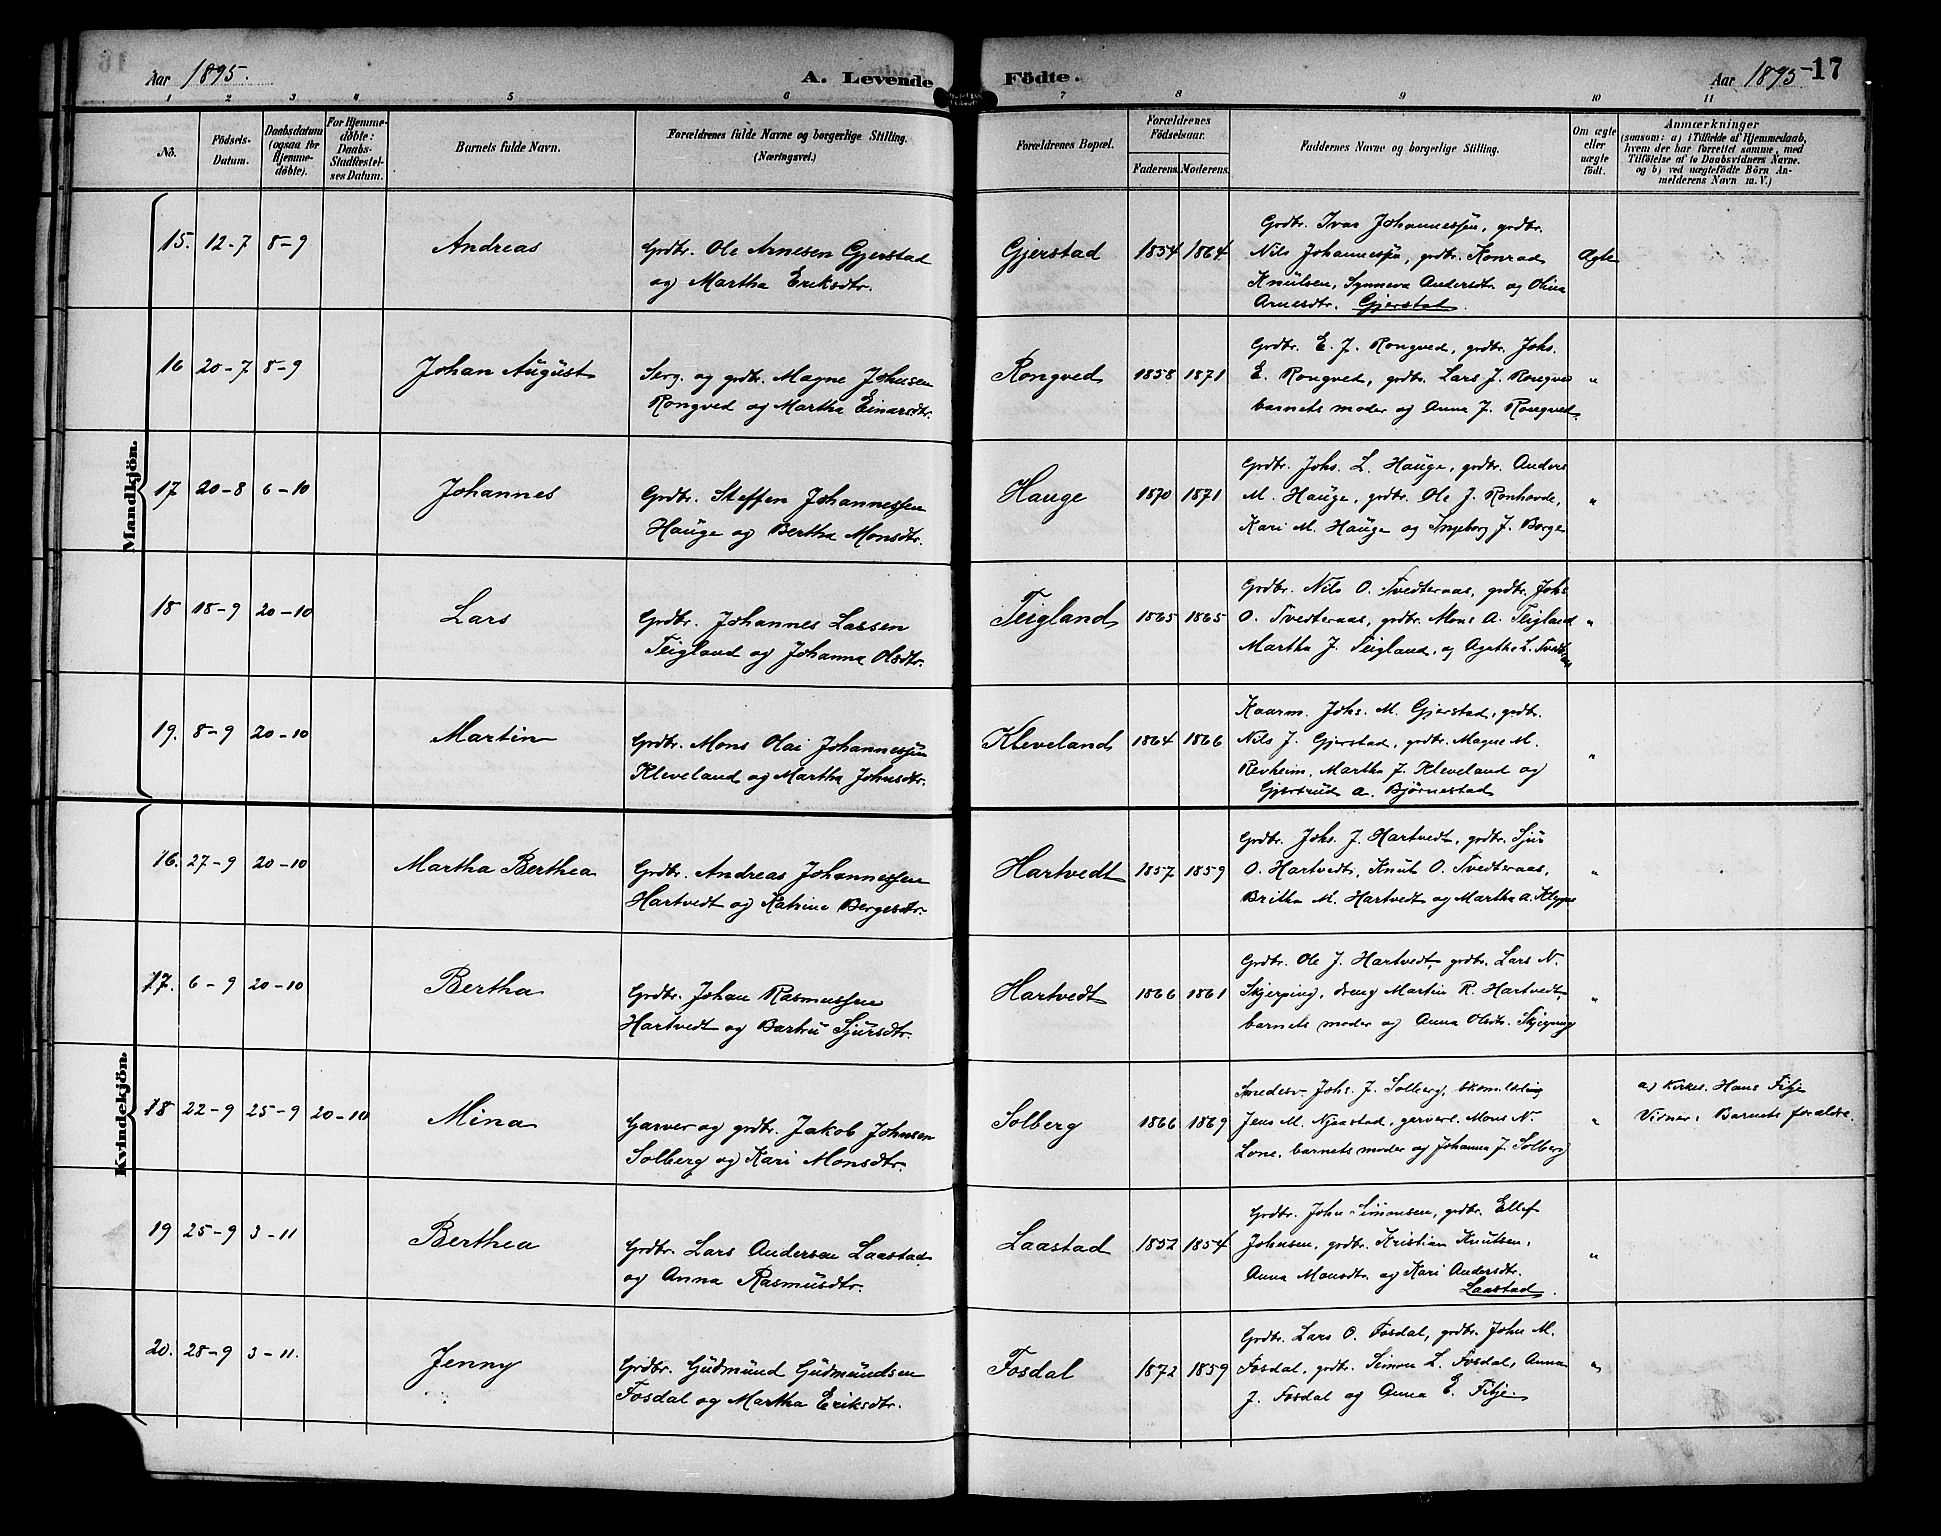 Aar 1895.
A. Levende
Födte.
Aar 1895
17
1 2 3 4 5 6 7 8 9 10 11
No.
Födsels-Datum.
Daabsdatum (ogsaa for Hjemme-døbte).
For Hjemme-døbte: Daabs-Stadfæstel-ses Datum.
Barnets fulde Navn.
Forældrenes fulde Navne og borgerlige Stilling. (Næringsvei.)
Forældrenes Bopæl.
Forældrenes Födselsaar.
Faderens. Moderens.
Faddernes Navne og borgerlige Stilling.
Om ægte eller uægte födt.
Anmærkninger
(saasom: a) i Tilfælde af Hjemmedaab,
hvem der har forrettet samme, med
Tilföielse af to Daabsvidners Navne.
og b) ved uægtefödte Börn An-
melderens Navn m. V.)
Mandkjön.
15. 12-7 8-9 Andreas
Grdbr. Ole Arnesen Gjerstad
og Martha Eriksdtr.
Gjerstad 1854 1864
Grdbr. Ivar Johannessen, grdbr.
Nils Johannessen, grdbr. Konrad
Knutsen, Synneva Andersdtr. og Olina
Arnesdtr. Gjerstad.
Ægte
16 20-7 8-9 Johan August
Serg. og grdbr. Magne Johnsen
Rongved og Martha Einarsdtr.
Rongved 1858 1871
Grdbr. E. J. Rongved, grdbr. Johs.
E. Rongved, grdbr. Lars J. Rongved
barnets moder og Anna J. Rongved.
"
17 20-8 6-10 Johannes
Grdbr. Steffen Johannessen
Hauge og Bertha Monsdtr.
Hauge 1870 1871
Grdbr. Johs. L. Hauge, grdbr. Anders
M. Hauge, grdbr. Ole J. Ronhovde,
Kari M. Hauge og Ingeborg J. Borge
"
18 18-9 20-10 Lars
Grdbr. Johannes Larsen
Teigland og Johanna Olsdtr.
Teigland 1865 1865
Grdbr. Nils O. Tvedternaas, grdbr. Johs
O. Tvedternaas, grdbr. Mons A. Teigland
Martha J. Teigland, og Agathe L.
"
19. 8-9 20-10 Martin
Grdbr. Mons Olai Johannessen
Kleveland og Martha Johnsdtr.
Kleveland 1864 1866
Kaarm. Johs. M. Gjerstad, grdbr.
Nils J. Gjerstad, grdbr. Magne M.
Revheim, Martha J. Kleveland og
Gjertrud A. Bjørnestad
"
Kvindekjön.
16. 27-9 20-10 Martha Berthea
Grdbr. Andreas Johannessen
Hartvedt og Katrine Bergesdtr.
Hartvedt 1857 1859
Grdbr. Johs. J. Hartvedt, grdbr. Sjur
O. Hartvedt, Knut O. Tvedternaas,
Britha M. Hartvedt og Martha A.
"
17. 6-9 20-10 Bertha
Grdbr. Johan Rasmussen
Hartvedt og Bartru Sjursdtr.
Hartvedt 1866 1861
Grdbr. Ole J. Hartvedt, grdbr. Lars N.
Skjerping, dreng Martin R. Hartvedt,
barnets moder og Anna Olsdtr.
"
18 22-9 25-9 20-10 Mina
Garver og grdbr. Jakob Johnsen
Solberg og Kari Monsdtr.
Solberg 1866 1869
Smedesv. Johs. J. Solberg,
Jens M. Njaastad, Mons N.
Lone, barnets moder og Johanna J. Solberg
"
a) Kirkes. Hans Fitje
Vidner: Barnets forældre.
19 25-9 3-11 Berthea
Grdbr. Lars Andersen Laastad
og Anna Rasmusdtr.
Laastad 1852 1854
Grdbr. John Simonsen, grdbr. Ellef
Johnsen, grdbr. Kristian Knutsen,
Anna Monsdtr. og Kari Andersdtr.
Laastad.
"
20. 28-9 3-11. Jenny
Grdbr. Gudmund Gudmundsen
Fosdal og Martha Eriksdtr.
Fosdal 1872 1859
Grdbr. Lars O. Fosdal, grdbr. John M.
Fosdal, grdbr. Simon L. Fosdal, Anna
J. Fosdal og Anna E. Fitje.
"